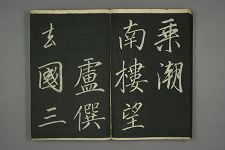 乘潮
南樓望
盧僎
去國三